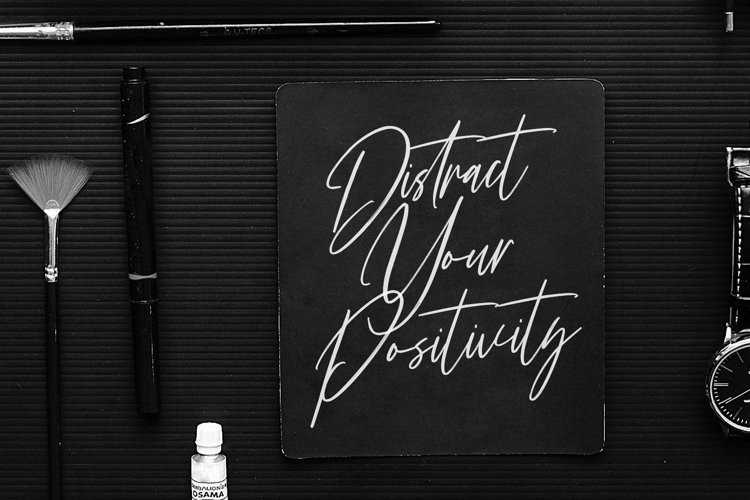 V-TEC
Distract
Your
Positivity
OSAMA